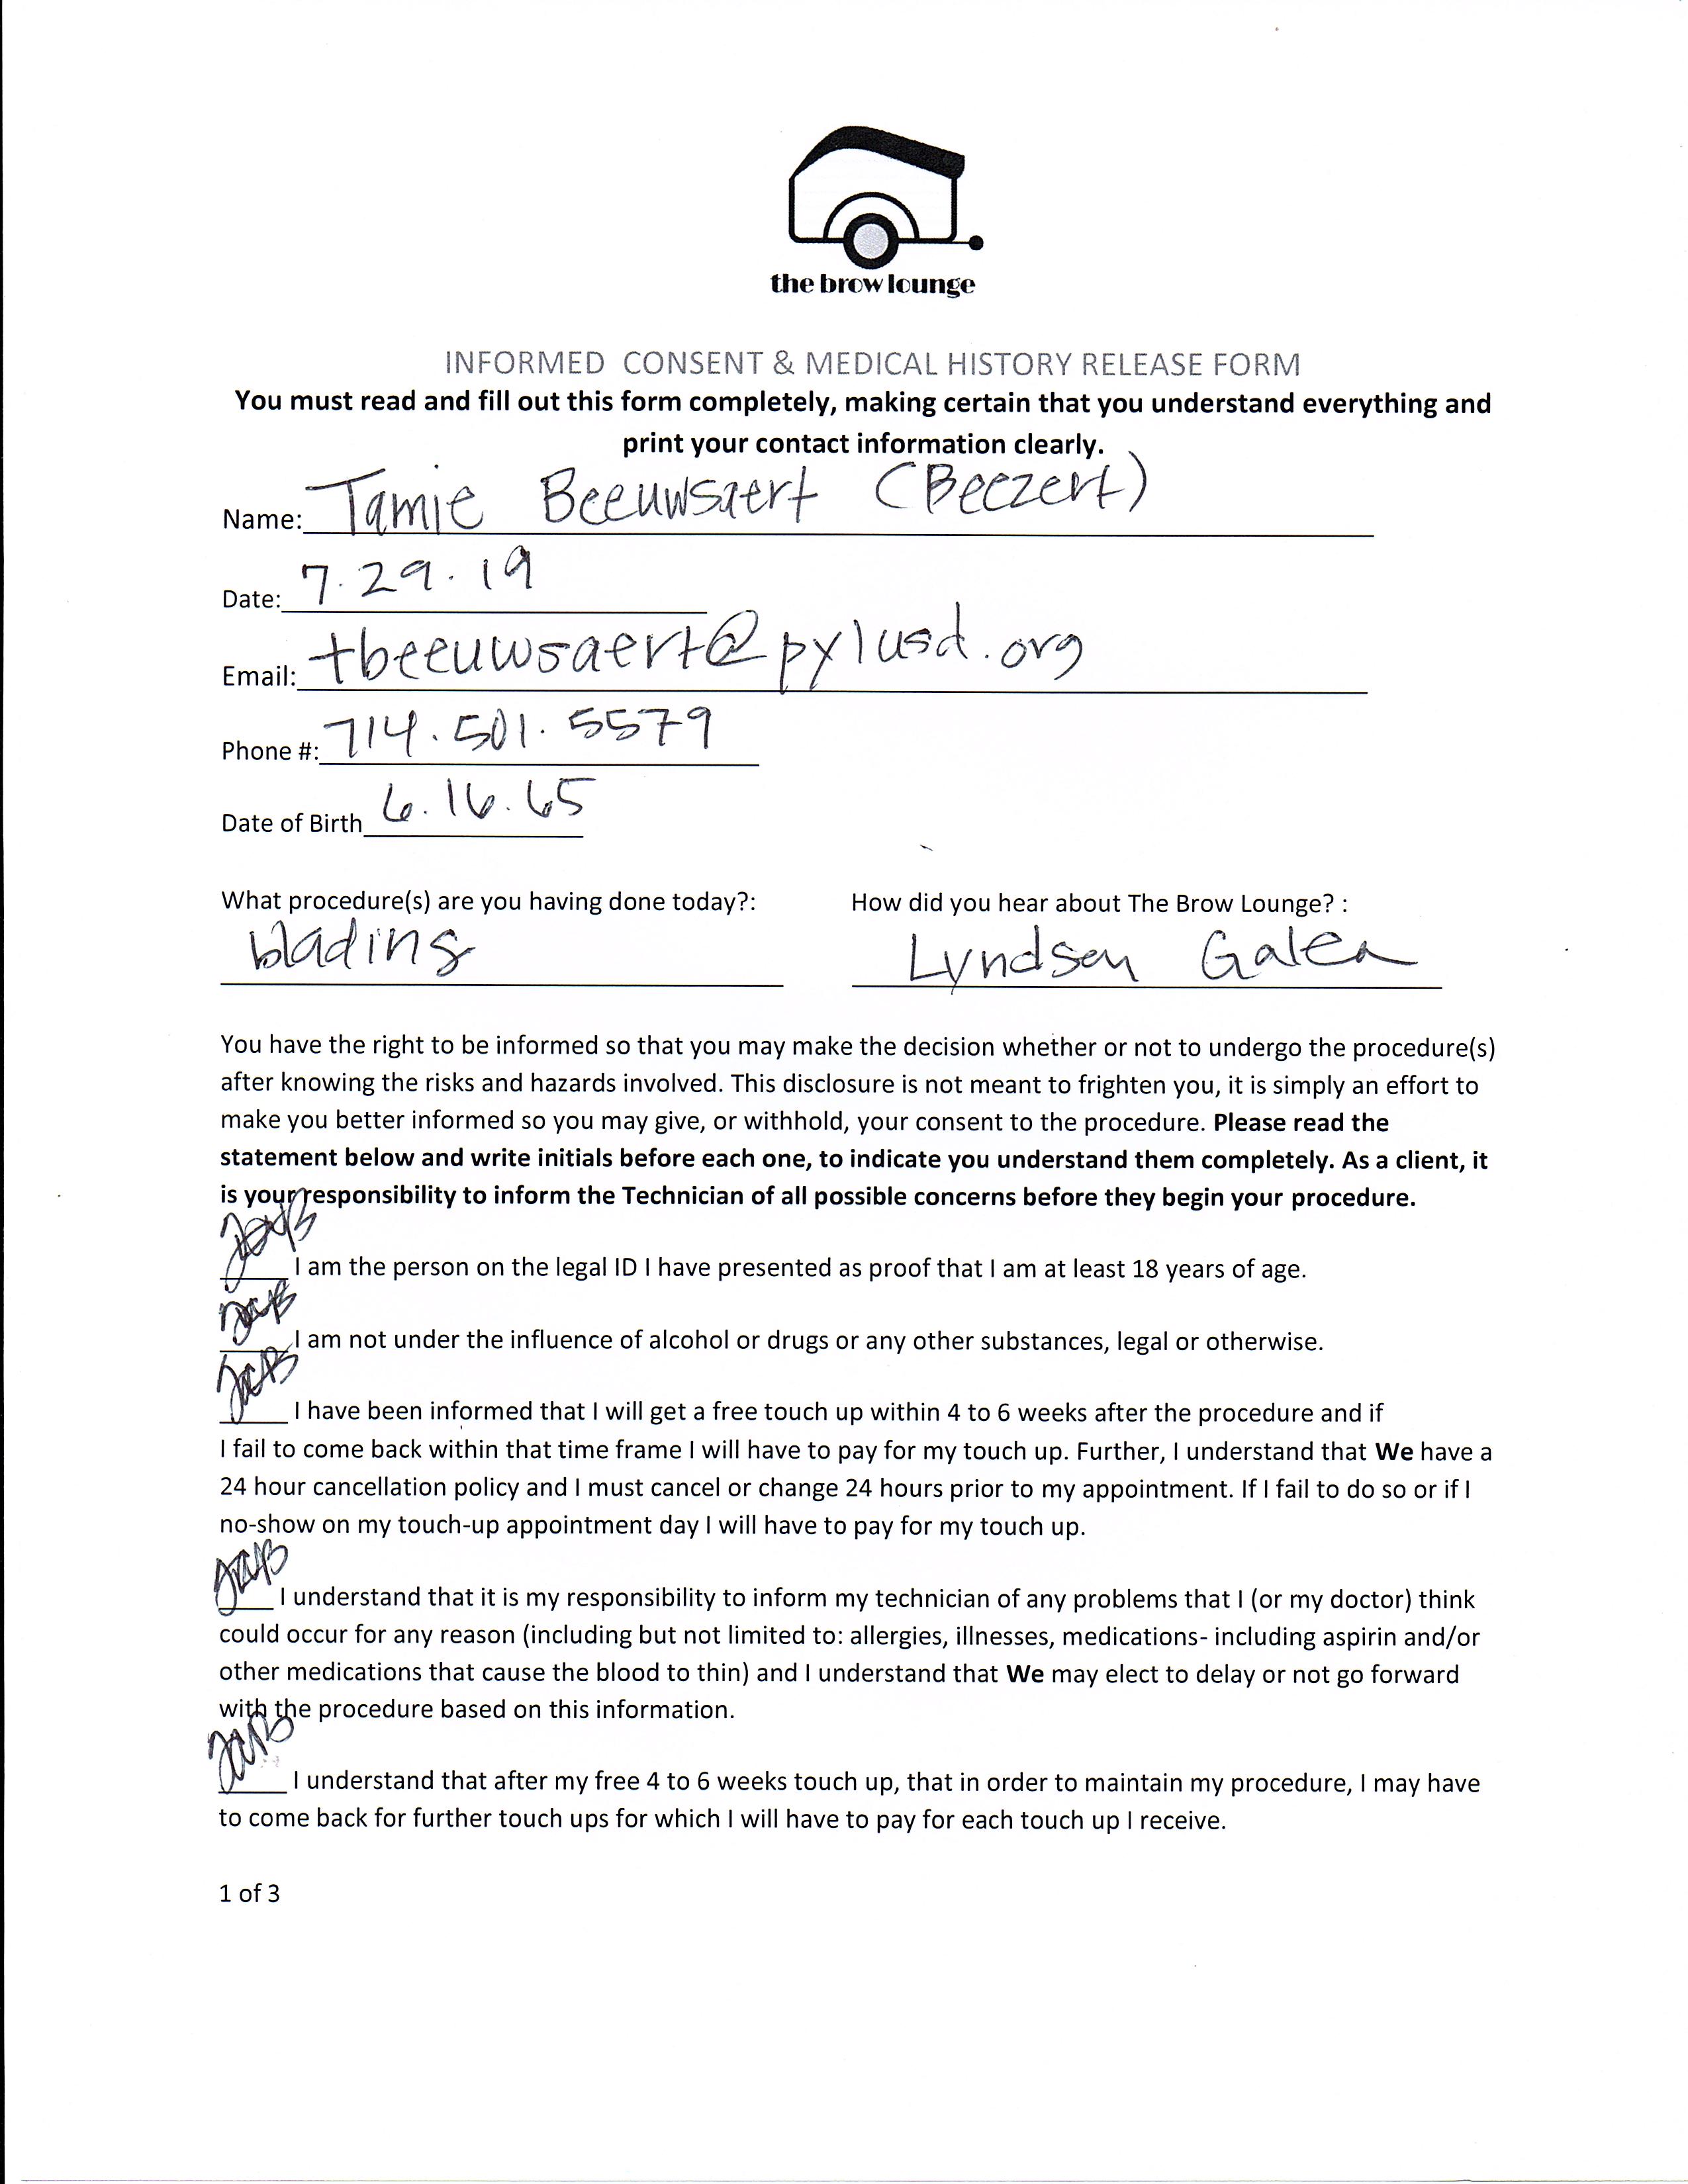 the brow lounge
INFORMED CONSENT & MEDICAL HISTORY RELEASE FORM
You must read and fill out this form completely, making certain that you understand everything and
print your contact information clearly.
Name: Tamie Beeuwsaert (Beezert)
Date: 7.29.19
Email: tbeeuwsaert@pylusd.org
Phone #: 714.501.5579
Date of Birth 6.16.65
What procedure(s) are you having done today?: How did you hear about The Brow Lounge? :
blading Lyndsey Galea
You have the right to be informed so that you may make the decision whether or not to undergo the procedure(s)
after knowing the risks and hazards involved. This disclosure is not meant to frighten you, it is simply an effort to
make you better informed so you may give, or withhold, your consent to the procedure. Please read the
statement below and write initials before each one, to indicate you understand them completely. As a client, it
is your responsibility to inform the Technician of all possible concerns before they begin your procedure.
I am the person on the legal ID I have presented as proof that I am at least 18 years of age.
I am not under the influence of alcohol or drugs or any other substances, legal or otherwise.
I have been informed that I will get a free touch up within 4 to 6 weeks after the procedure and if
I fail to come back within that time frame I will have to pay for my touch up. Further, I understand that We have a
24 hour cancellation policy and I must cancel or change 24 hours prior to my appointment. If I fail to do so or if I
no-show on my touch-up appointment day I will have to pay for my touch up.
I understand that it is my responsibility to inform my technician of any problems that I (or my doctor) think
could occur for any reason (including but not limited to: allergies, illnesses, medications- including aspirin and/or
other medications that cause the blood to thin) and I understand that We may elect to delay or not go forward
with the procedure based on this information.
I understand that after my free 4 to 6 weeks touch up, that in order to maintain my procedure, I may have
to come back for further touch ups for which I will have to pay for each touch up I receive.
1 of 3